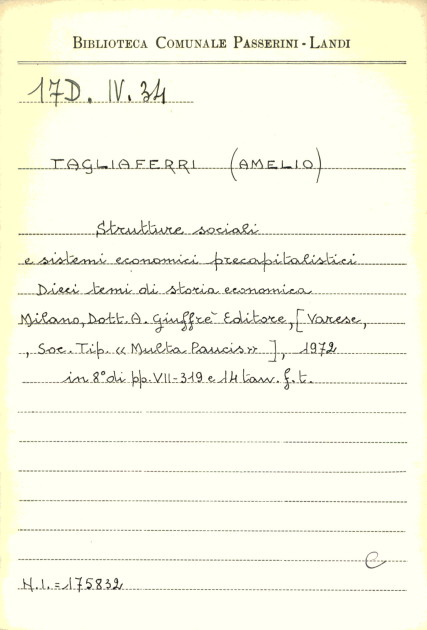 BIBLIOTECA COMUNALE PASSERINI - LANDI
17D. IV. 34
TAGLIAFERRI (AMELIO)
Strutture sociali
e sistemi economici precapitalistici
Dieci temi di storia economica
Milano, Dott. A. Giuffrè Editore, [Varese,
, Soc. Tip. «Multa Paucis»], 1972
in 8° di pp. VII-319 e 14 tav. f. t.
C
N.I.=175832